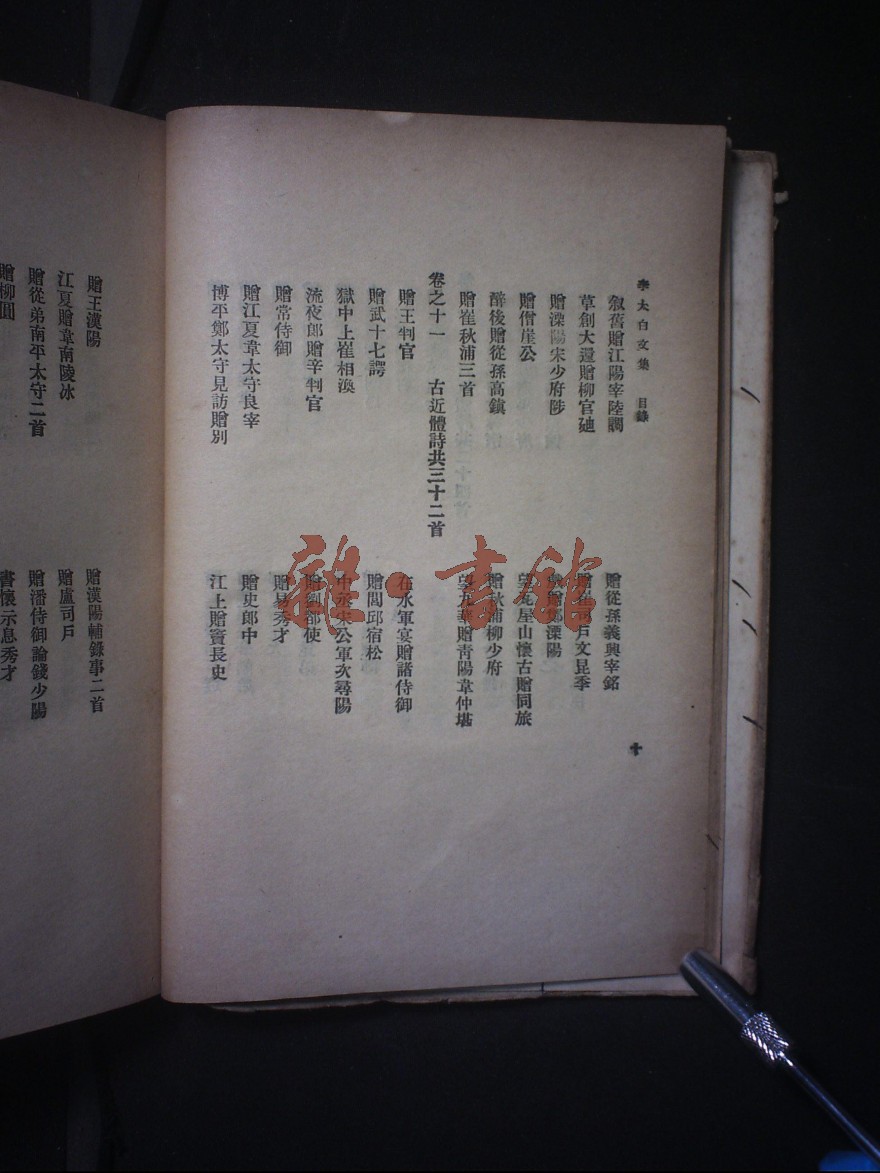 李太白文集 目錄
敍舊贈江陽宰陸調 贈從孫義興宰銘
草創大還贈柳官迪 贈崔司戶文昆季
贈溧陽宋少府陟 贈鄭溧陽
贈僧崖公 屋山懷古贈同旅
醉後贈從孫高鎮 贈秋浦柳少府
贈崔秋浦三首 望九華贈青陽韋仲堪
卷之十一 古近體詩共三十二首
贈王判官 在水軍宴贈諸侍御
贈武十七諤 贈閭邱宿松
獄中上崔相渙 中丞宋公軍次尋陽
流夜郎贈辛判官 贈劉都使
贈常侍御 贈易秀才
贈江夏韋太守良宰 贈史郎中
博平鄭太守見訪贈別 江上贈竇長史
十
贈王漢陽 贈漢陽輔錄事二首
江夏贈韋南陵冰 贈盧司戶
贈從弟南平太守二首 贈潘侍御論錢少陽
贈柳圓 書懷示息秀才
雜·書館